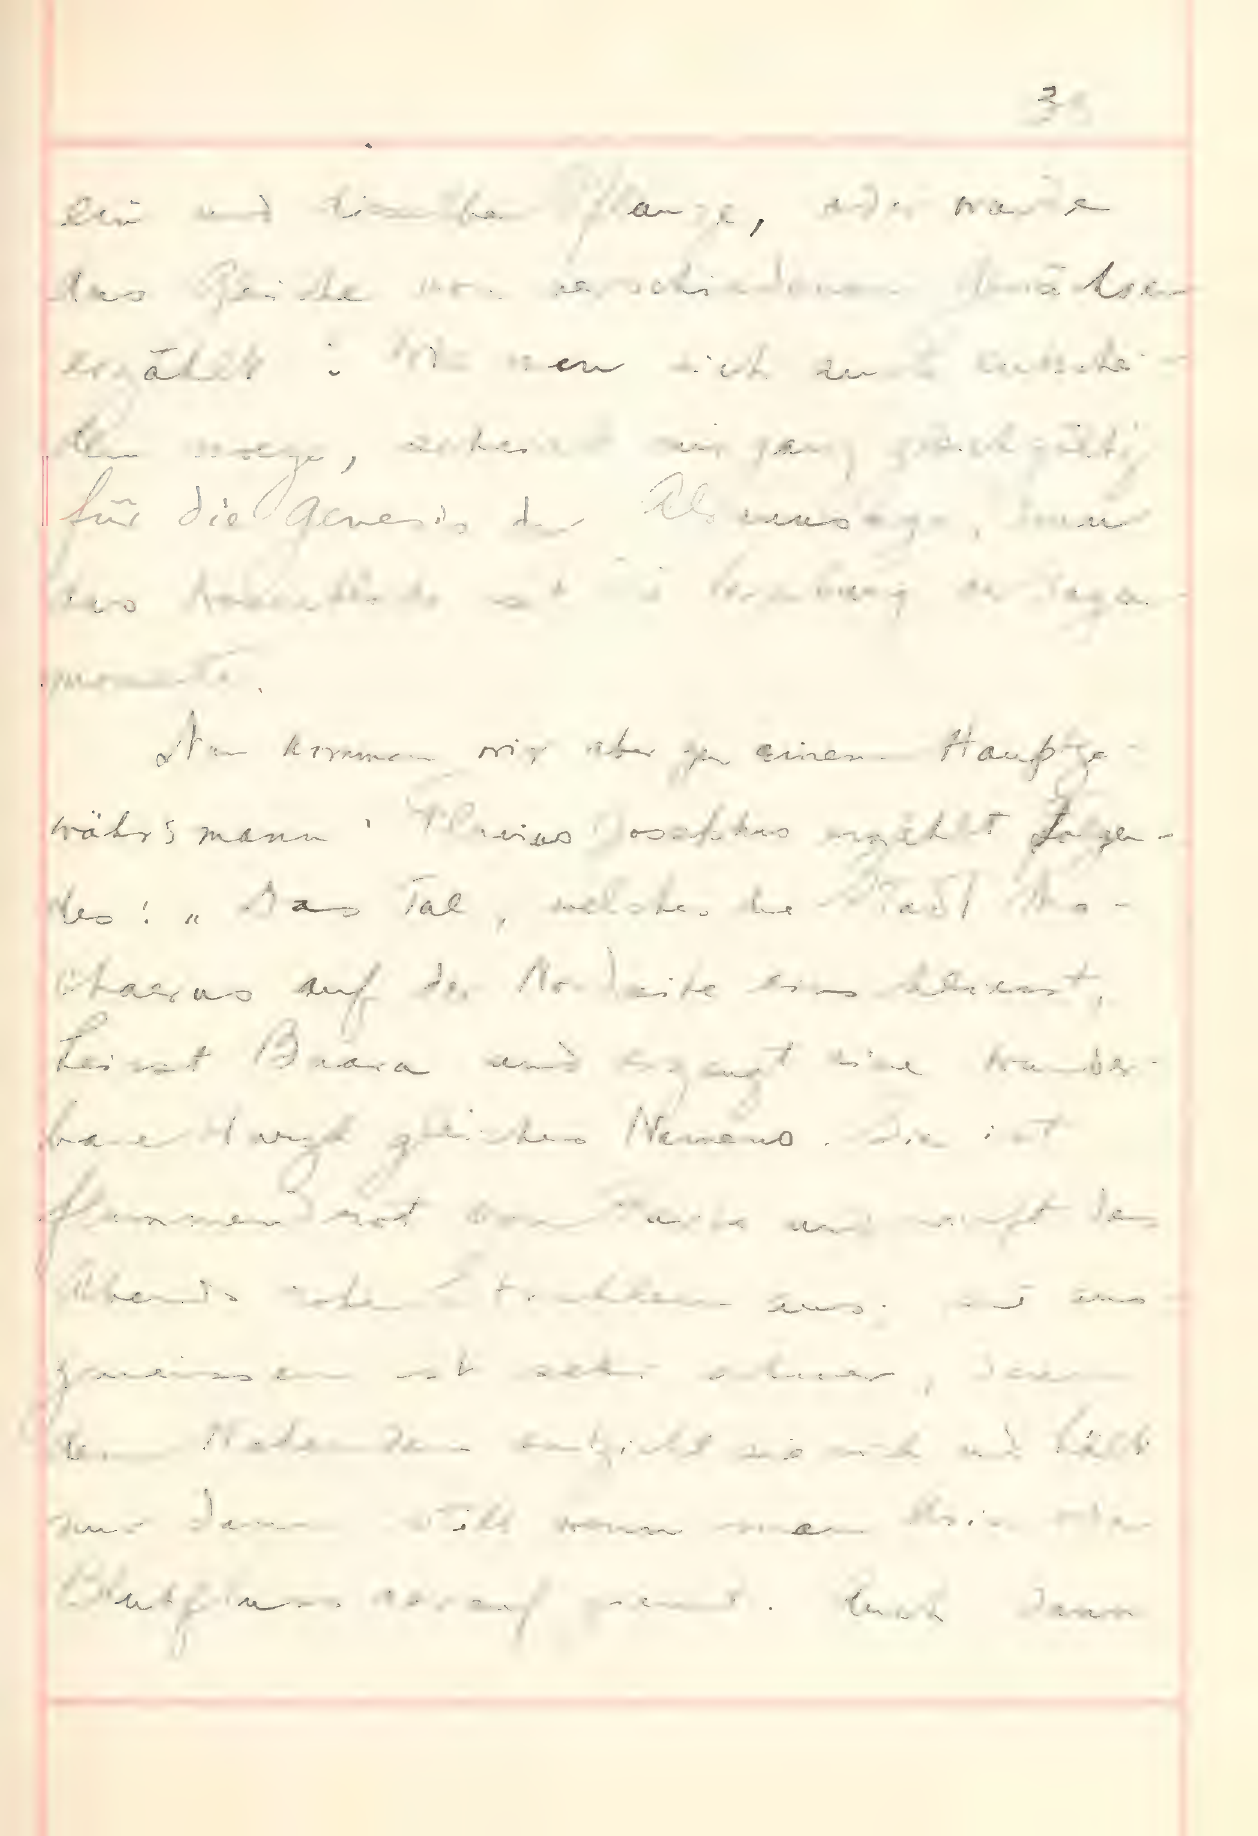 ein und dieselbe Pflanze, oder wurde
das Gleiche von verschiedenen Gewächsen
erzählt? Wie man sich auch entschei-
den moege, scheint mir ganz gleichgültig
für die Genesis der Alraunsage, denn
das ist die der Sagen-
momente.
Nun kommen wir aber zu einem Hauptge-
währsmann: Flavius Josephus erzählt Folgen-
des: „Das Tal, welches die Stadt Ma-
chaerus auf der Nordseite einschliesst,
heisst Baara und erzeugt eine wunder-
bare Wurzel gleichen Namens. Sie ist
flammendrot von Farbe und wirft des
Abends rote Strahlen aus; sie aus-
zureissen ist sehr schwer, denn
dem Nahenden entzieht sie sich und hält
nur dann still wenn man Urin oder
Blutfluss darauf giesst. Auch dann